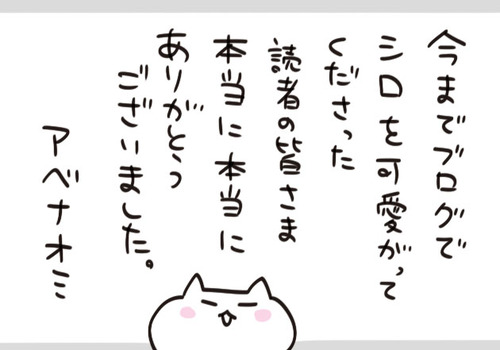 今までブログで
シロを可愛がって
くださった
読者の皆さま
本当に本当に
ありがとう
ございました。
アベナオミ